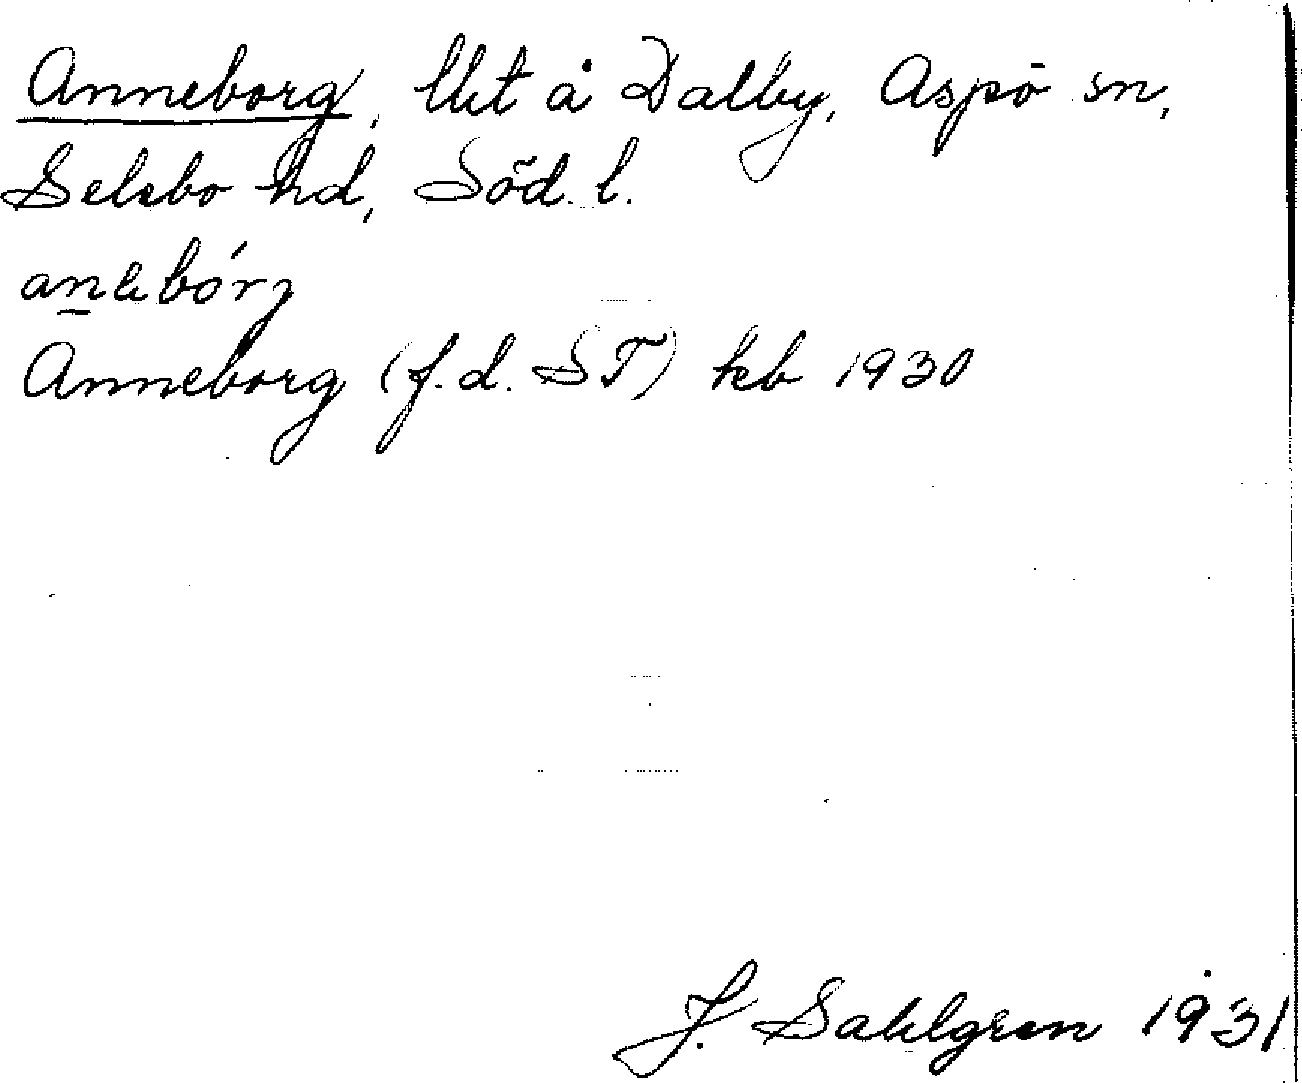 Anneborg, lht å Dalby, Aspö sn,
Selebo hd, Söd. l.
Anneborg (f.d. ST) kb 1930
J. Sahlgren 1931